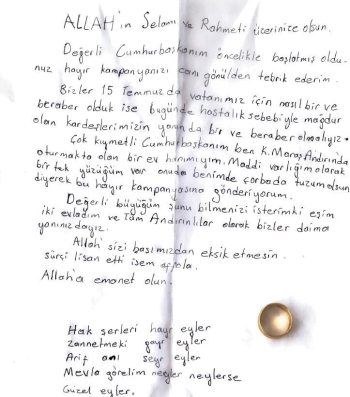 ALLAH'ın Selamı ve Rahmeti üzerinize olsun.
Değerli Cumhurbaşkanım öncelikle başlatmış oldu-
nuz hayır kampanyanızı canı gönülden tebrik ederim.
Bizler 15 Temmuzda vatanımız için nasıl bir ve
beraber olduk ise bugünde hastalık sebebiyle mağdur
olan kardeşlerimizin yanında bir ve beraber olmalıyız.
Çok kıymetli Cumhurbaşkanım ben K.Maraş Andırında
oturmakta olan bir ev hanımıyım. Maddi varlığım olarak
bir tek yüzüğüm var onuda benimde çorbada tuzum olsun
diyerek bu hayır kampanyasına gönderiyorum.
Değerli büyüğüm şunu bilmenizi isterimki eşim
iki evladım ve tüm Andırınlılar olarak bizler daima
yanınızdayız.
Allah sizi başımızdan eksik etmesin.
sürçi lisan etti isem affola.
Allah'a emanet olun.
Hak şerleri hayr eyler
zannetmeki gayr eyler
Arif anı seyr eyler
Mevla görelim neyler neylerse
Güzel eyler.